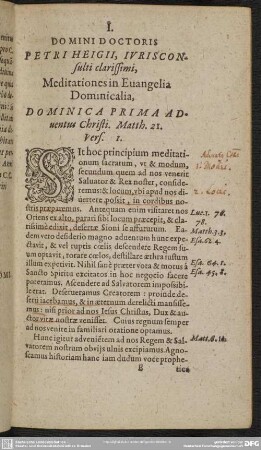 I.
DOMINI DOCTORIS
PETRI HEIGII, IVRISCON-
sulti clarissimi,
Meditationes in Euangelia
Dominicalia,
DOMINICA PRIMA AD-
uentus Christi. Matth. 21.
Vers. 1.
SIt hoc principium meditati-
onum sacrarum, vt & modum,
secundum quem ad nos venerit
Saluator & Rex noster, conside-
remus: & locum, vbi apud nos di-
uertere possit, in cordibus no-
stris præparemus. Antequam enim visitaret nos
Oriens ex alto, parari sibi locum præcepit, & cla-
rissimè edixit, desertæ Sioni se affuturum. Ea-
dem vero desiderio magno aduentum hunc expe-
ctauit, & vel ruptis cœlis descendere Regem su-
um optauit, rorate cœlos, destillare æthra iustum
illum expetiuit. Nihil suo præter vota & motus à
Sancto Spiritu excitatos in hoc negocio sacre
poteramus. Ascendere ad Saluatorem impossibi-
le erat. Deserueramus Creatorem: proinde de-
serti iacebamus, & in æternum derelicti mansisse-
mus: nisi prior ad nos Iesus Christus, Dux & au-
ctor vitæ nostræ venisset. Cuius regnum semper
ad nos venire in familiari oratione optamus.
Hunc igitur aduenientem ad nos Regem & Sal-
uatorem nostrum obuijs ulnis excipiamus Agno-
scamus historiam hanc iam dudum voce prophe-
B
tica
Luc. 1. 78.
Matth. 3. 3.
Esa. 62. 4.
Esa. 64. 1.
Esa. 45. 8.
Matt. 6. 10.